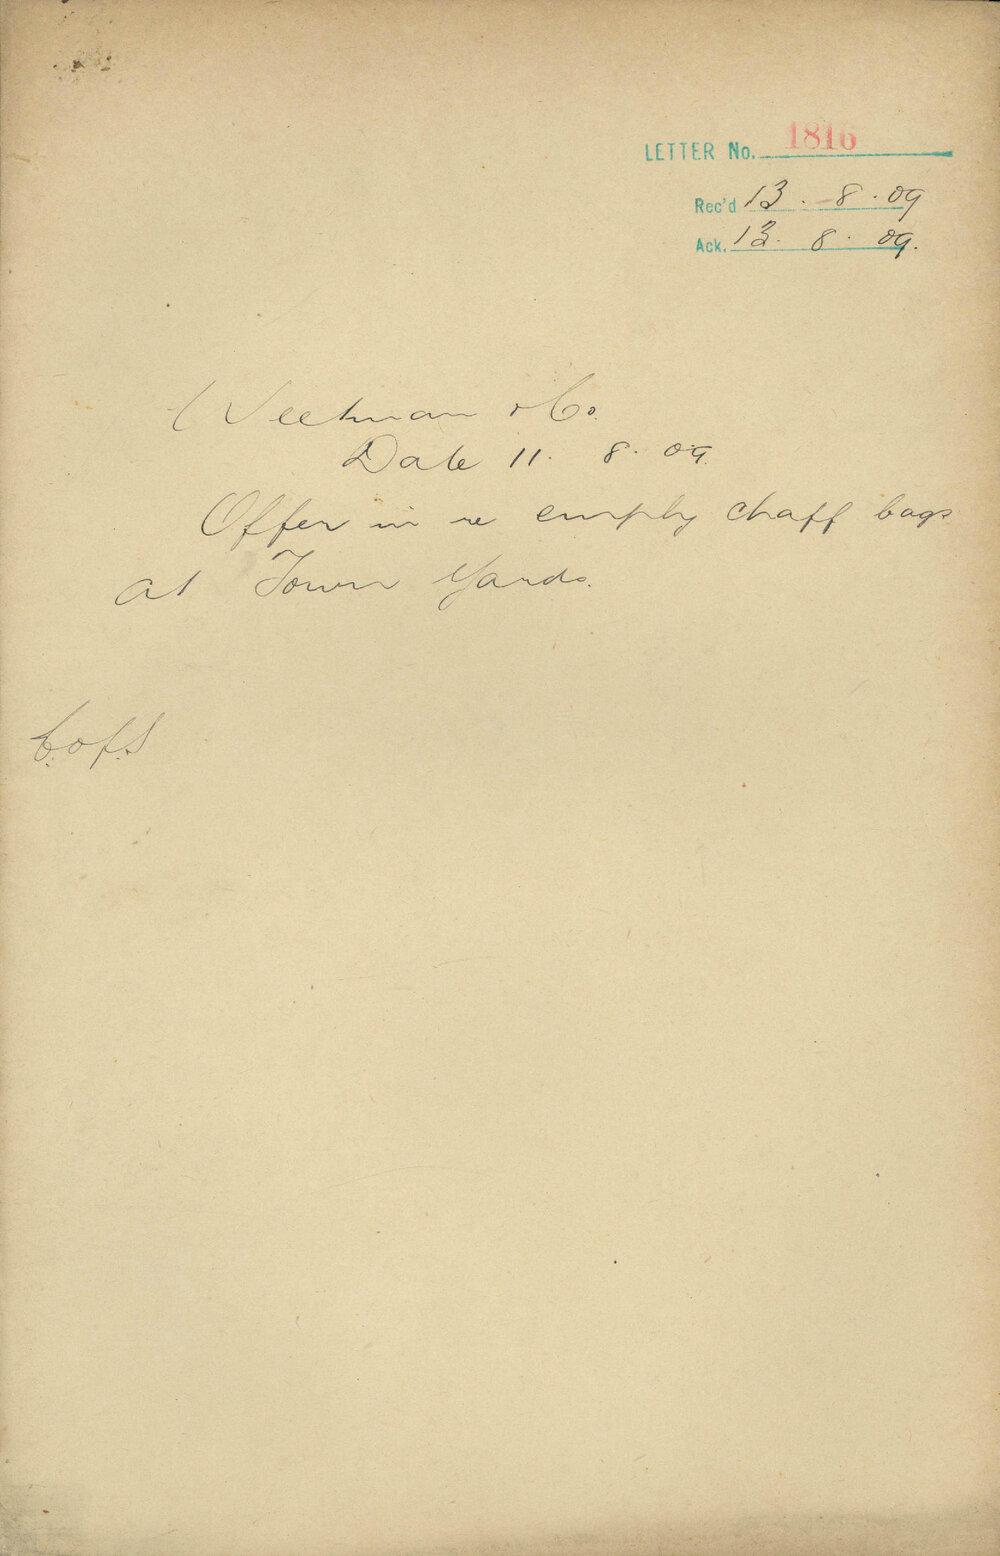 LETTER No. 1816
Rec'd 13 . 8 . 09
Ack. 13 . 8 . 09.
Weetman & Co.
Date 11. 8. 09.
Offer in re empty chaff bags
at Town Yards.
C.of.S